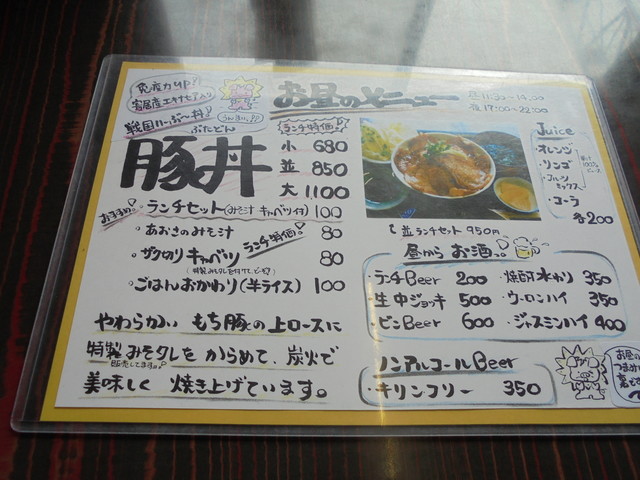 免疫力UP!!
寄居産エキナセア入り
戦国いーぶー丼♪
ぶたどん
豚丼
ランチ特価!
小 680
並 850
大 1100
おすすめ!
・ランチセット(みそ汁 キャベツ付) 100
・あおさのみそ汁 80
・ザク切りキャベツ 80
ランチ特価!
・ごはんおかわり(半ライス) 100
やわらかい もち豚の上ロースに
特製みそタレをからめて、炭火で
販売してます。
美味しく 焼き上げています。
お昼のメニュー
昼11:30〜14:00
夜17:00〜22:00
並ランチセット 950円
Juice
・オレンジ
・リンゴ
・フルーツミックス
・コーラ
各200
昼から お酒。
・ランチBeer 200
・生中ジョッキ 500
・ビンBeer 600
・焼酎水わり 350
・ウーロンハイ 350
・ジャスミンハイ 400
ノンアルコールBeer
・キリンフリー 350
お昼
つまみ